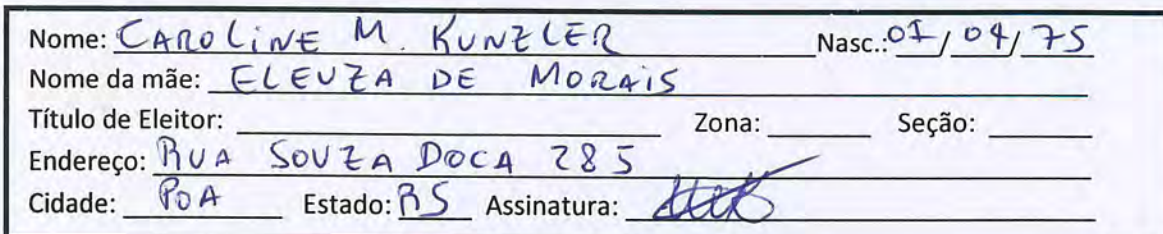 Nome: CAROLINE M. KUNZLER Nasc.: 01/04/75
Nome da mãe: ELEUZA DE MORAIS
Título de Eleitor: Zona: Seção:
Endereço: RUA SOUZA DOCA 285
Cidade: POA Estado: RS Assinatura: